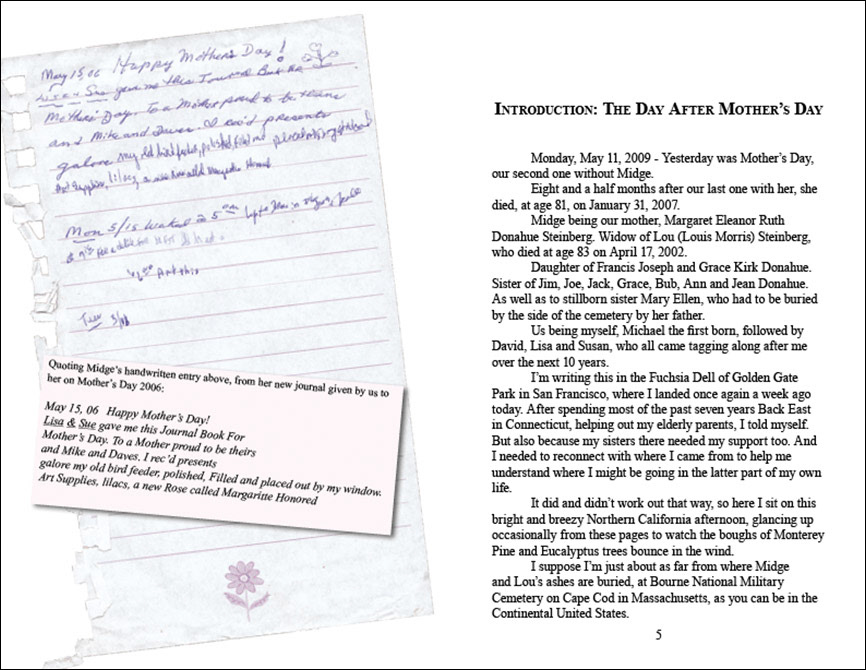 May 15, 06 Happy Mother's Day!
Lisa & Sue gave me this Journal Book For
Mother's Day. To a Mother proud to be theirs
and Mike and Daves. I rec'd presents
galore my old bird feeder, polished, filled and placed out by my window
Art Supplies, lilacs, a new Rose called Margaritte Honored
Mon 5/15 Waked @ 5 am
Tues 5/16
Quoting Midge's handwritten entry above, from her new journal given by us to
her on Mother's Day 2006:
May 15, 06 Happy Mother's Day!
Lisa & Sue gave me this Journal Book For
Mother's Day. To a Mother proud to be theirs
and Mike and Daves. I rec'd presents
galore my old bird feeder, polished, Filled and placed out by my window.
Art Supplies, lilacs, a new Rose called Margaritte Honored
Introduction: The Day After Mother's Day
Monday, May 11, 2009 - Yesterday was Mother's Day,
our second one without Midge.
Eight and a half months after our last one with her, she
died, at age 81, on January 31, 2007.
Midge being our mother, Margaret Eleanor Ruth
Donahue Steinberg. Widow of Lou (Louis Morris) Steinberg,
who died at age 83 on April 17, 2002.
Daughter of Francis Joseph and Grace Kirk Donahue.
Sister of Jim, Joe, Jack, Grace, Bub, Ann and Jean Donahue.
As well as to stillborn sister Mary Ellen, who had to be buried
by the side of the cemetery by her father.
Us being myself, Michael the first born, followed by
David, Lisa and Susan, who all came tagging along after me
over the next 10 years.
I'm writing this in the Fuchsia Dell of Golden Gate
Park in San Francisco, where I landed once again a week ago
today. After spending most of the past seven years Back East
in Connecticut, helping out my elderly parents, I told myself.
But also because my sisters there needed my support too. And
I needed to reconnect with where I came from to help me
understand where I might be going in the latter part of my own
life.
It did and didn't work out that way, so here I sit on this
bright and breezy Northern California afternoon, glancing up
occasionally from these pages to watch the boughs of Monterey
Pine and Eucalyptus trees bounce in the wind.
I suppose I'm just about as far from where Midge
and Lou's ashes are buried, at Bourne National Military
Cemetery on Cape Cod in Massachusetts, as you can be in the
Continental United States.
5